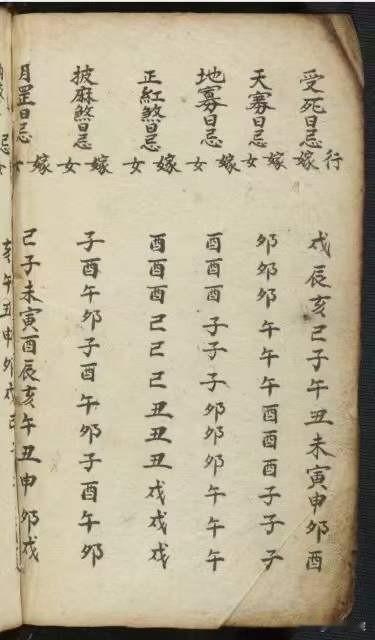 受死日忌行嫁戌辰亥巳子午丑未寅申卯酉
天寡日忌嫁女卯卯卯午午午酉酉酉子子子
地寡日忌嫁女酉酉酉子子子卯卯卯午午午
正紅煞日忌嫁女酉酉酉巳巳巳丑丑丑戌戌戌
披麻煞日忌嫁女子酉午卯子酉午卯子酉午卯
月罡日忌嫁女巳子未寅酉辰亥午丑申卯戌
忌女亥午丑申卯戌